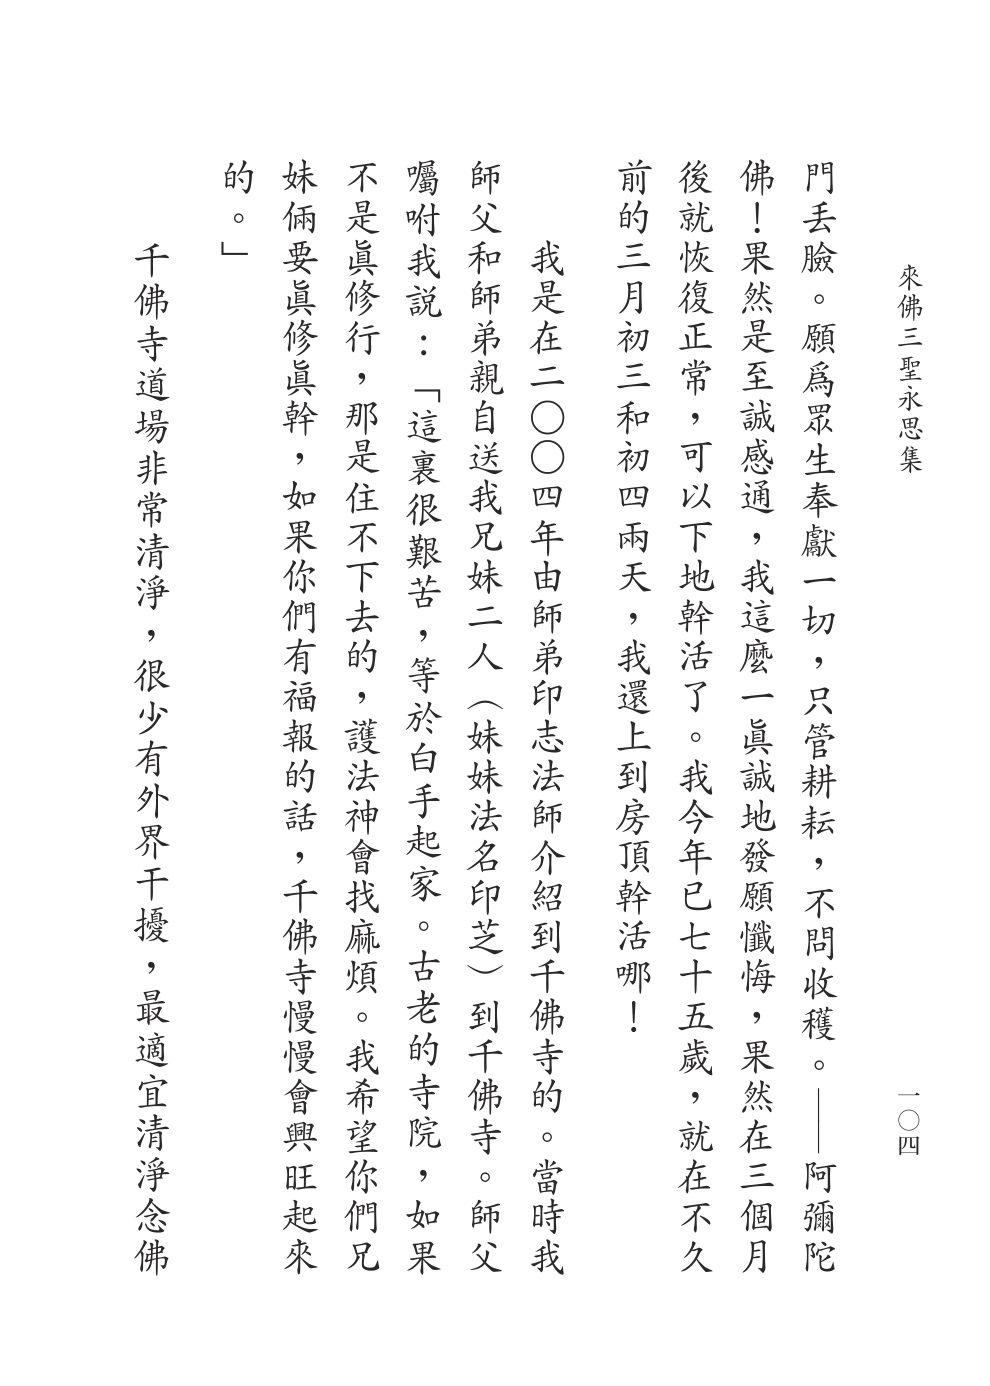 來佛三聖永思集
一〇四
門丟臉。願爲眾生奉獻一切，只管耕耘，不問收穫。——阿彌陀
佛！果然是至誠感通，我這麼一眞誠地發願懺悔，果然在三個月
後就恢復正常，可以下地幹活了。我今年已七十五歲，就在不久
前的三月初三和初四兩天，我還上到房頂幹活哪！
我是在二〇〇四年由師弟印志法師介紹到千佛寺的。當時我
師父和師弟親自送我兄妹二人（妹妹法名印芝）到千佛寺。師父
囑咐我説：「這裏很艱苦，等於白手起家。古老的寺院，如果
不是眞修行，那是住不下去的，護法神會找麻煩。我希望你們兄
妹倆要眞修眞幹，如果你們有福報的話，千佛寺慢慢會興旺起來
的。」
千佛寺道場非常清淨，很少有外界干擾，最適宜清淨念佛